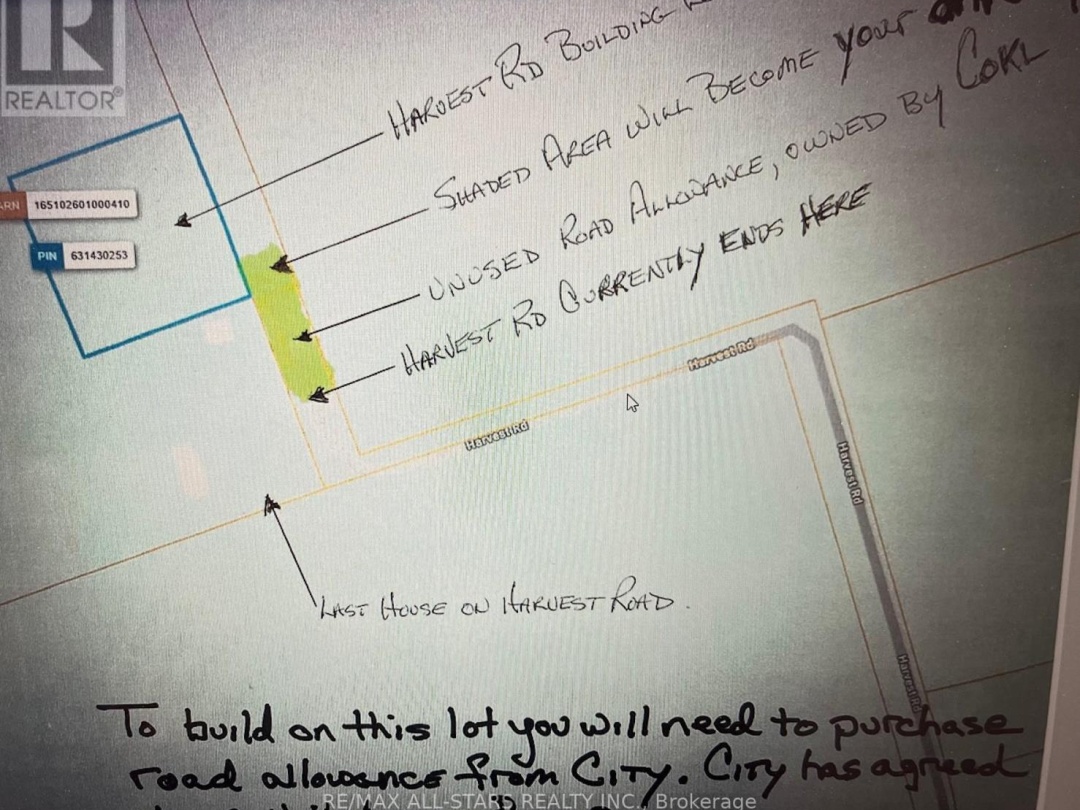 REALTOR®
HARVEST RD BUILDING
SHADED AREA WILL BECOME YOUR
UNUSED ROAD ALLOWANCE, OWNED BY COKL
HARVEST RD CURRENTLY ENDS HERE
ARN 165102601000410
PIN 631430253
Harvest Rd
Harvest Rd
Harvest Rd
Harvest Rd
LAST HOUSE ON HARVEST ROAD.
To build on this lot you will need to purchase
road allowance from CITY. CITY has agreed
RE/MAX ALL-STARS REALTY INC., Brokerage